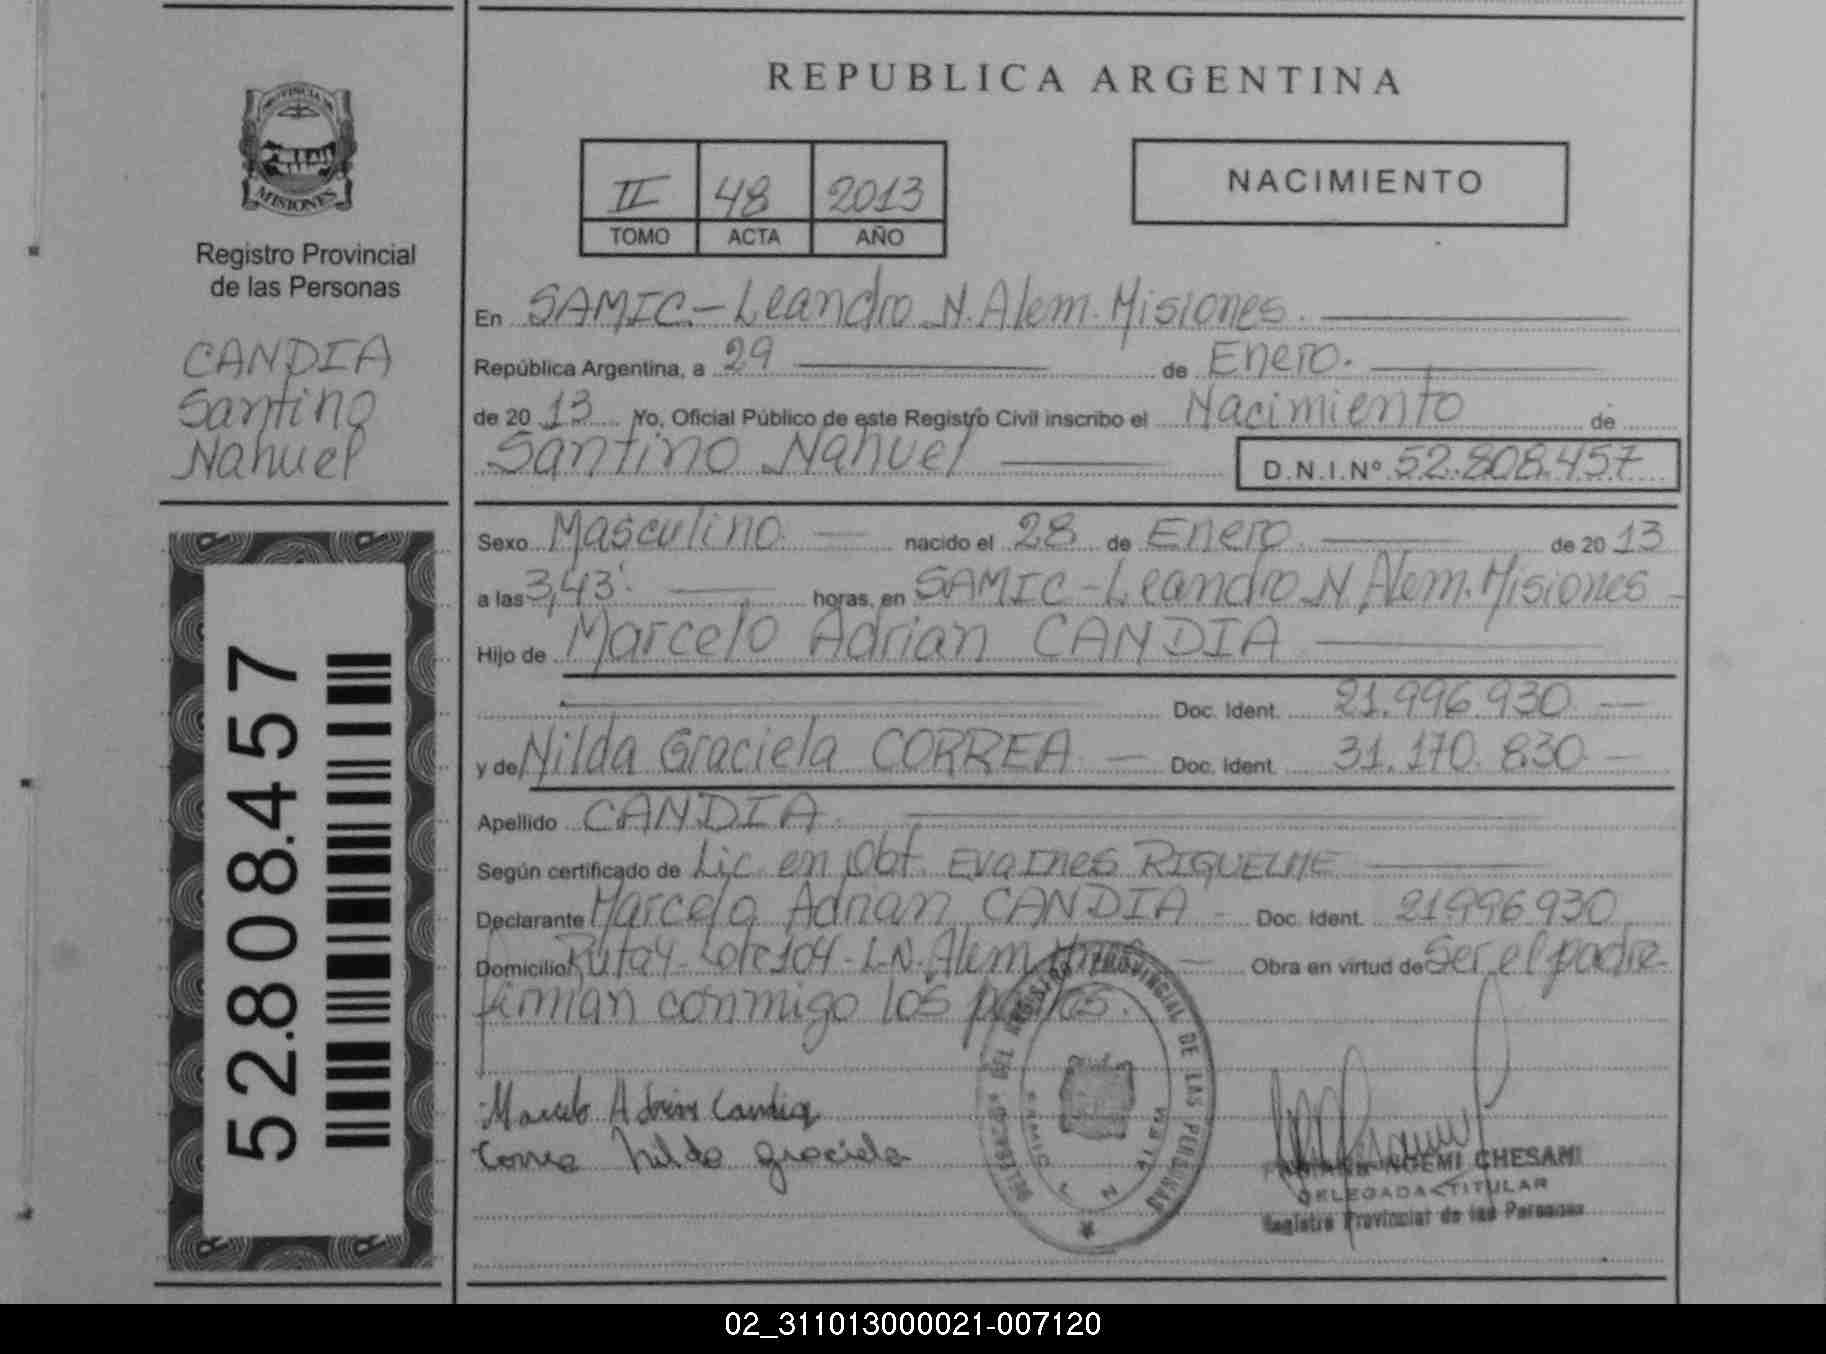 REPUBLICA ARGENTINA
PROVINCIA DE
MISIONES
Registro Provincial
de las Personas
CANDIA
Santino
Nahuel
52.808.457
II 48 2013
TOMO ACTA AÑO
NACIMIENTO
En SAMIC - Leandro N. Alem. Misiones.
República Argentina, a 29 de Enero.
de 20 13 Yo, Oficial Público de este Registro Civil inscribo el Nacimiento de
Santino Nahuel D.N.I.Nº 52.808.457
Sexo Masculino nacido el 28 de Enero de 20 13
a las 3,43' horas, en SAMIC - Leandro N. Alem. Misiones
Hijo de Marcelo Adrian CANDIA
Doc. Ident. 21.996.930
y de Nilda Graciela CORREA Doc. Ident. 31.170.830
Apellido CANDIA
Según certificado de Lic. en Obt. Eva Ines RIQUELME
Declarante Marcelo Adrian CANDIA Doc. Ident. 21996930
Domicilio Ruta 4 - Lote 104 - L.N. Alem Obra en virtud de Ser el padre
firman conmigo los padres.
Marcelo Adrian Candia
Correa Nilda graciela
REGISTRO PROVINCIAL DE LAS PERSONAS
NOEMI CHESANI
DELEGADA TITULAR
Registro Provincial de las Personas
02_311013000021-007120